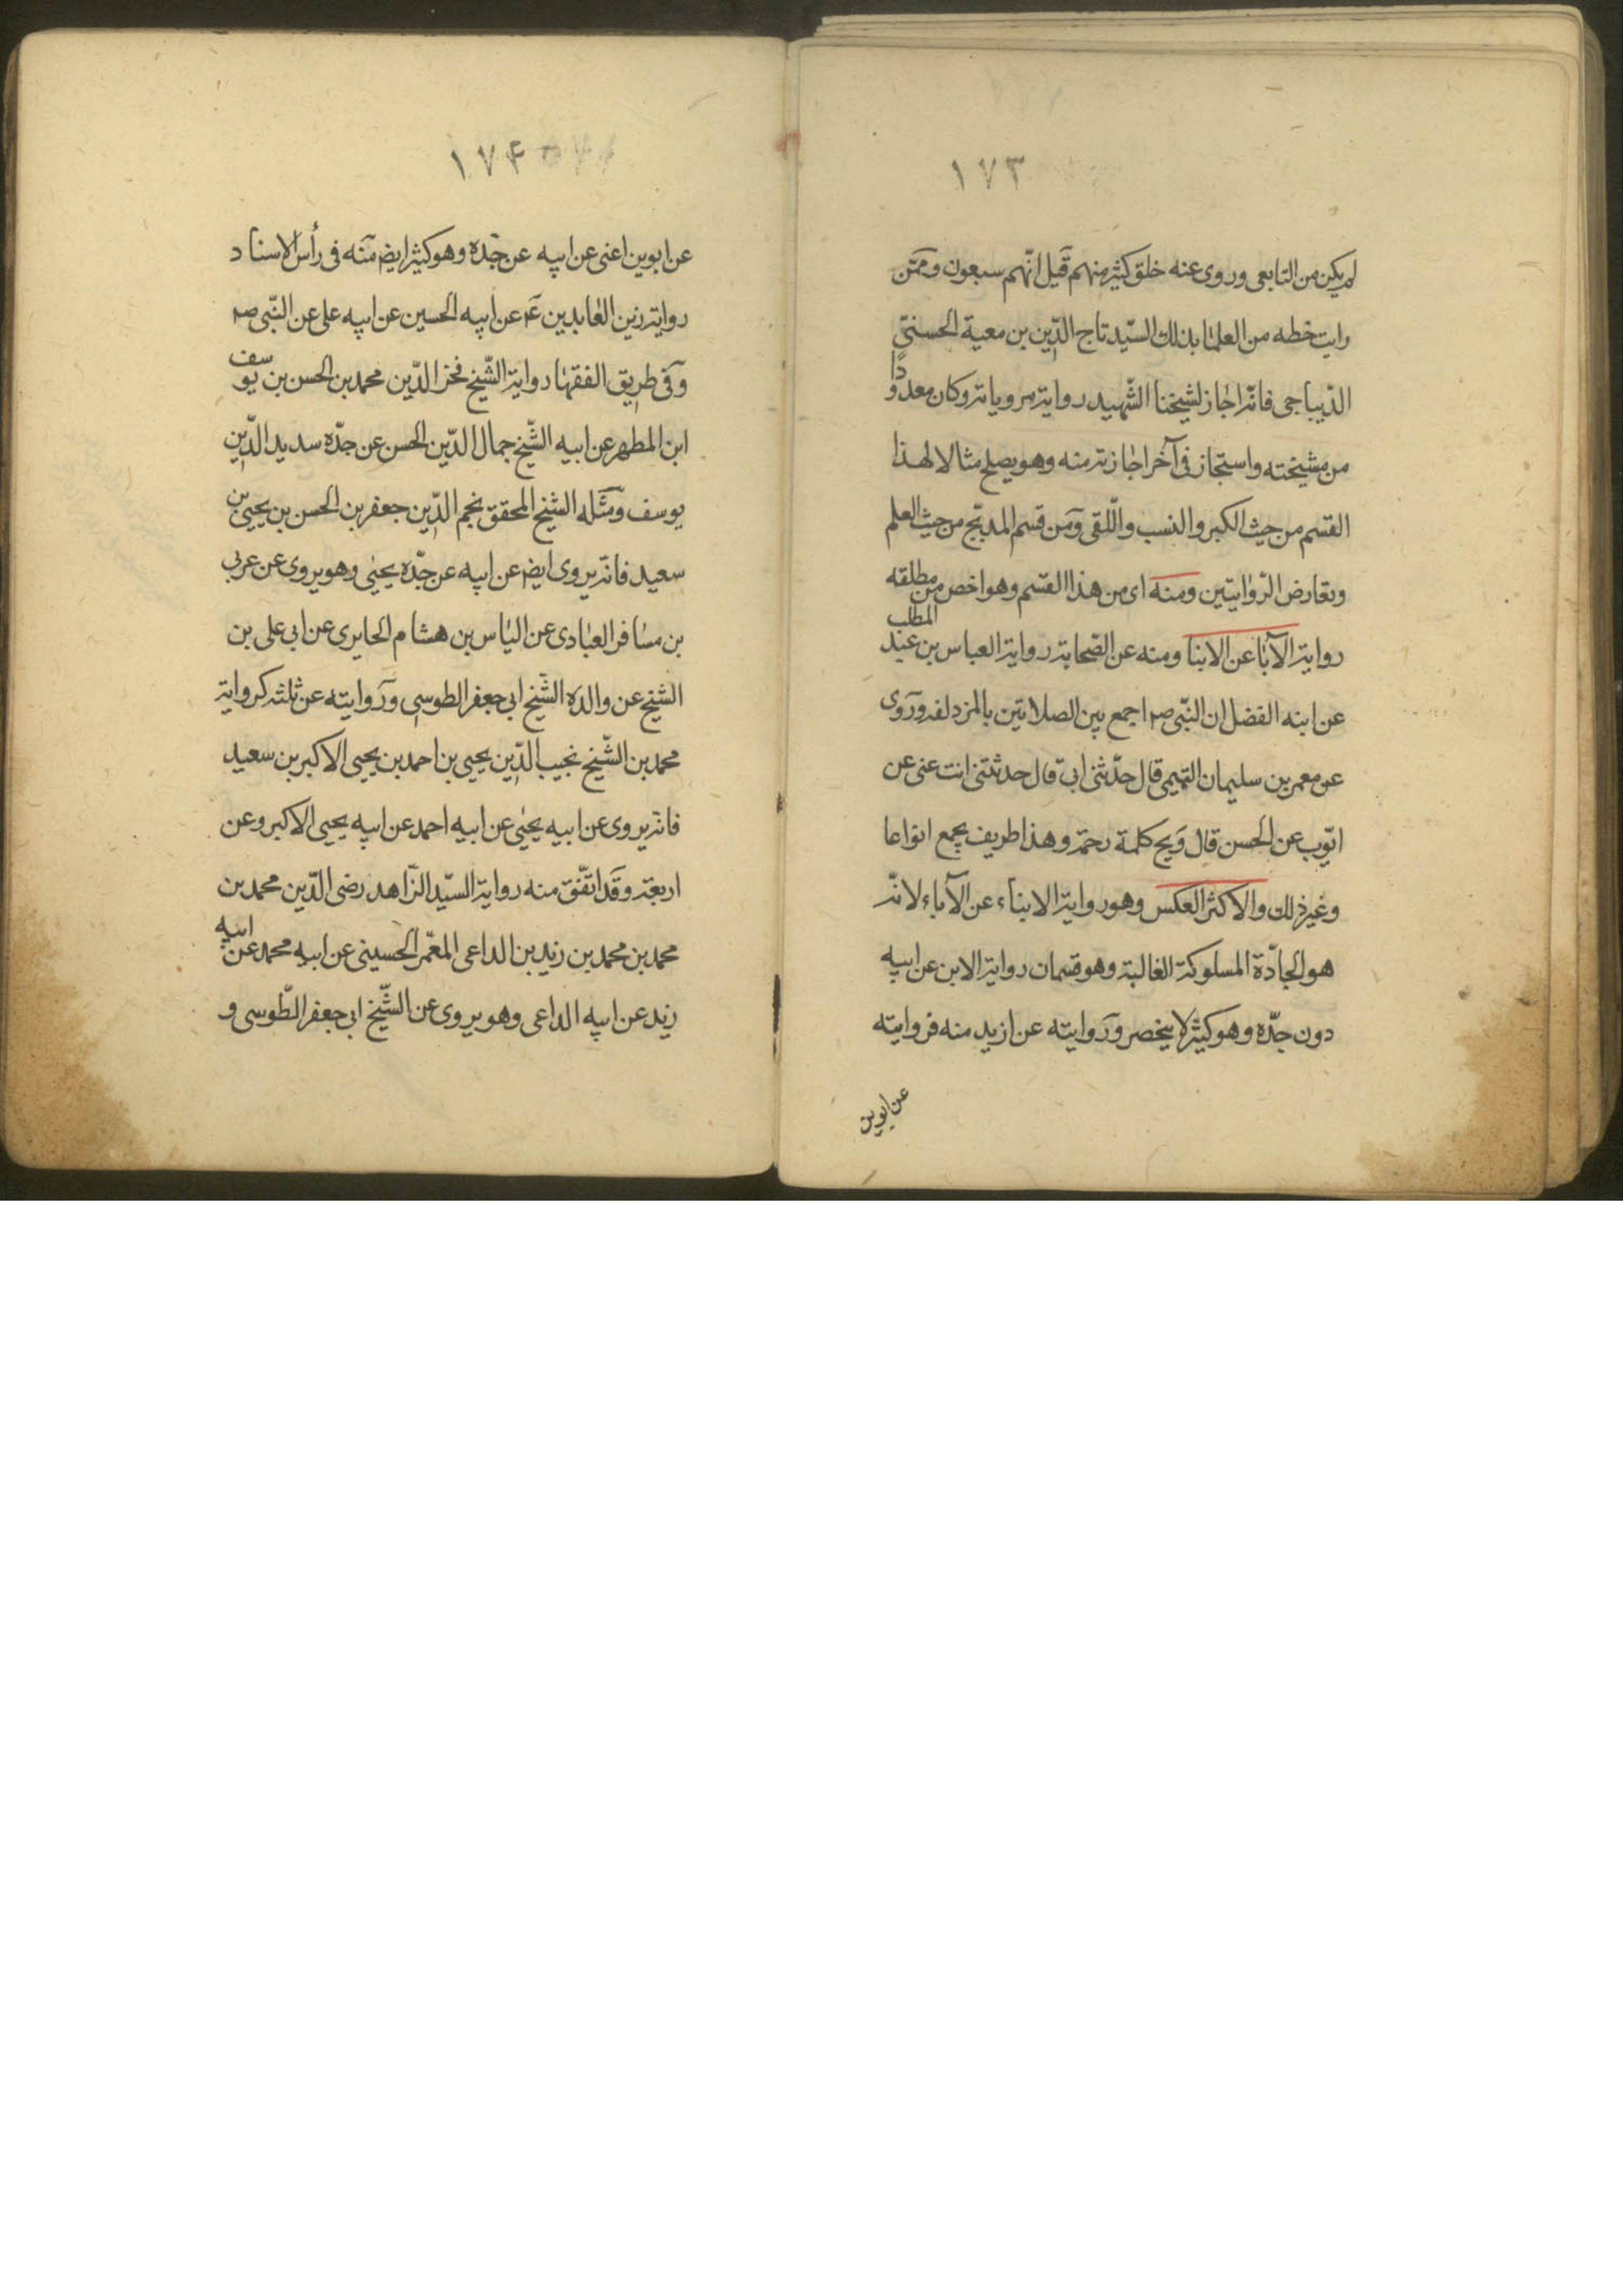 ١٧٣
لم يكن من التابعى وروى عنه خلق كثير منهم قيل انّهم سبعون وممّن
رايت خطه من العلمٰا بذلك السيّد تاج الدّين بن معية الحسنىّ
الدّيباجى فانّه اجٰاز لشيخنا الشّهيد رواية مروياته وكان معدودًا
من مشيخته واستجاز فى آخر اجٰازته منه وهو يصلح مثالا لهذا
القسم من حيث الكبر والنسب واللّقى ومن قسم المدبّج من حيث العلم
وتعارض الرّوٰايتين ومنه اى من هذا القسم وهو اخص من مطلقه
رواية الآبٰا عن الابنا ومنه عن الصّحابة رواية العباس بن عبد المطلب
عن ابنه الفضل ان النّبى صم اجمع بين الصلاتين بالمزدلفه وروى
عن معمر بن سليمان التيمى قال حدّثنى ابى قال حدثتنى انت عنى عن
ايّوب عن الحسن قال وَيح كلمة رحمة وهذا طريف يجمع انواعا
وغير ذلك والاكثر العكس وهو رواية الابناء عن الآباء لانّه
هو الجادّة المسلوكة الغالبة وهو قسمان رواية الابن عن ابيه
دون جدّه وهو كثير لا ينحصر وروايته عن ازيد منه فروايته
عن ابوين
١٧٤
عن ابوين اعنى عن ابيه عن جدّه وهو كثير ايضا منه فى رأس الاسناد
رواية زين العٰابدين عم عن ابيه الحسين عن ابيه على عن النّبى صم
وفى طريق الفقهٰا رواية الشّيخ فخر الدّين محمد بن الحسن بن يوسف
ابن المطهر عن ابيه الشّيخ جمال الدّين الحسن عن جدّه سديد الدّين
يوسف ومثله الشيخ المحقق نجم الدّين جعفر بن الحسن بن يحيى بن
سعيد فانّه يروى ايضا عن ابيه عن جدّه يحيٰى وهو يروى عن عربى
بن مسٰافر العبٰادى عن اليٰاس بن هشام الحايرى عن ابى على بن
الشيخ عن والده الشّيخ ابى جعفر الطوسى وروايته عن ثلثه كرواية
محمد بن الشّيخ نجيب الدّين يحيى بن احمد بن يحيى الاكبر بن سعيد
فانّه يروى عن ابيه يحيٰى عن ابيه احمد عن ابيه يحيى الاكبر وعن
اربعة وقد اتّفق منه رواية السيّد الزّاهد رضى الدّين محمد بن
محمد بن محمد بن زيد بن الداعى المعمّر الحسينى عن ابيه محمد عن ابيه
زيد عن ابيه الداعى وهو يروى عن الشّيخ ابى جعفر الطّوسى و